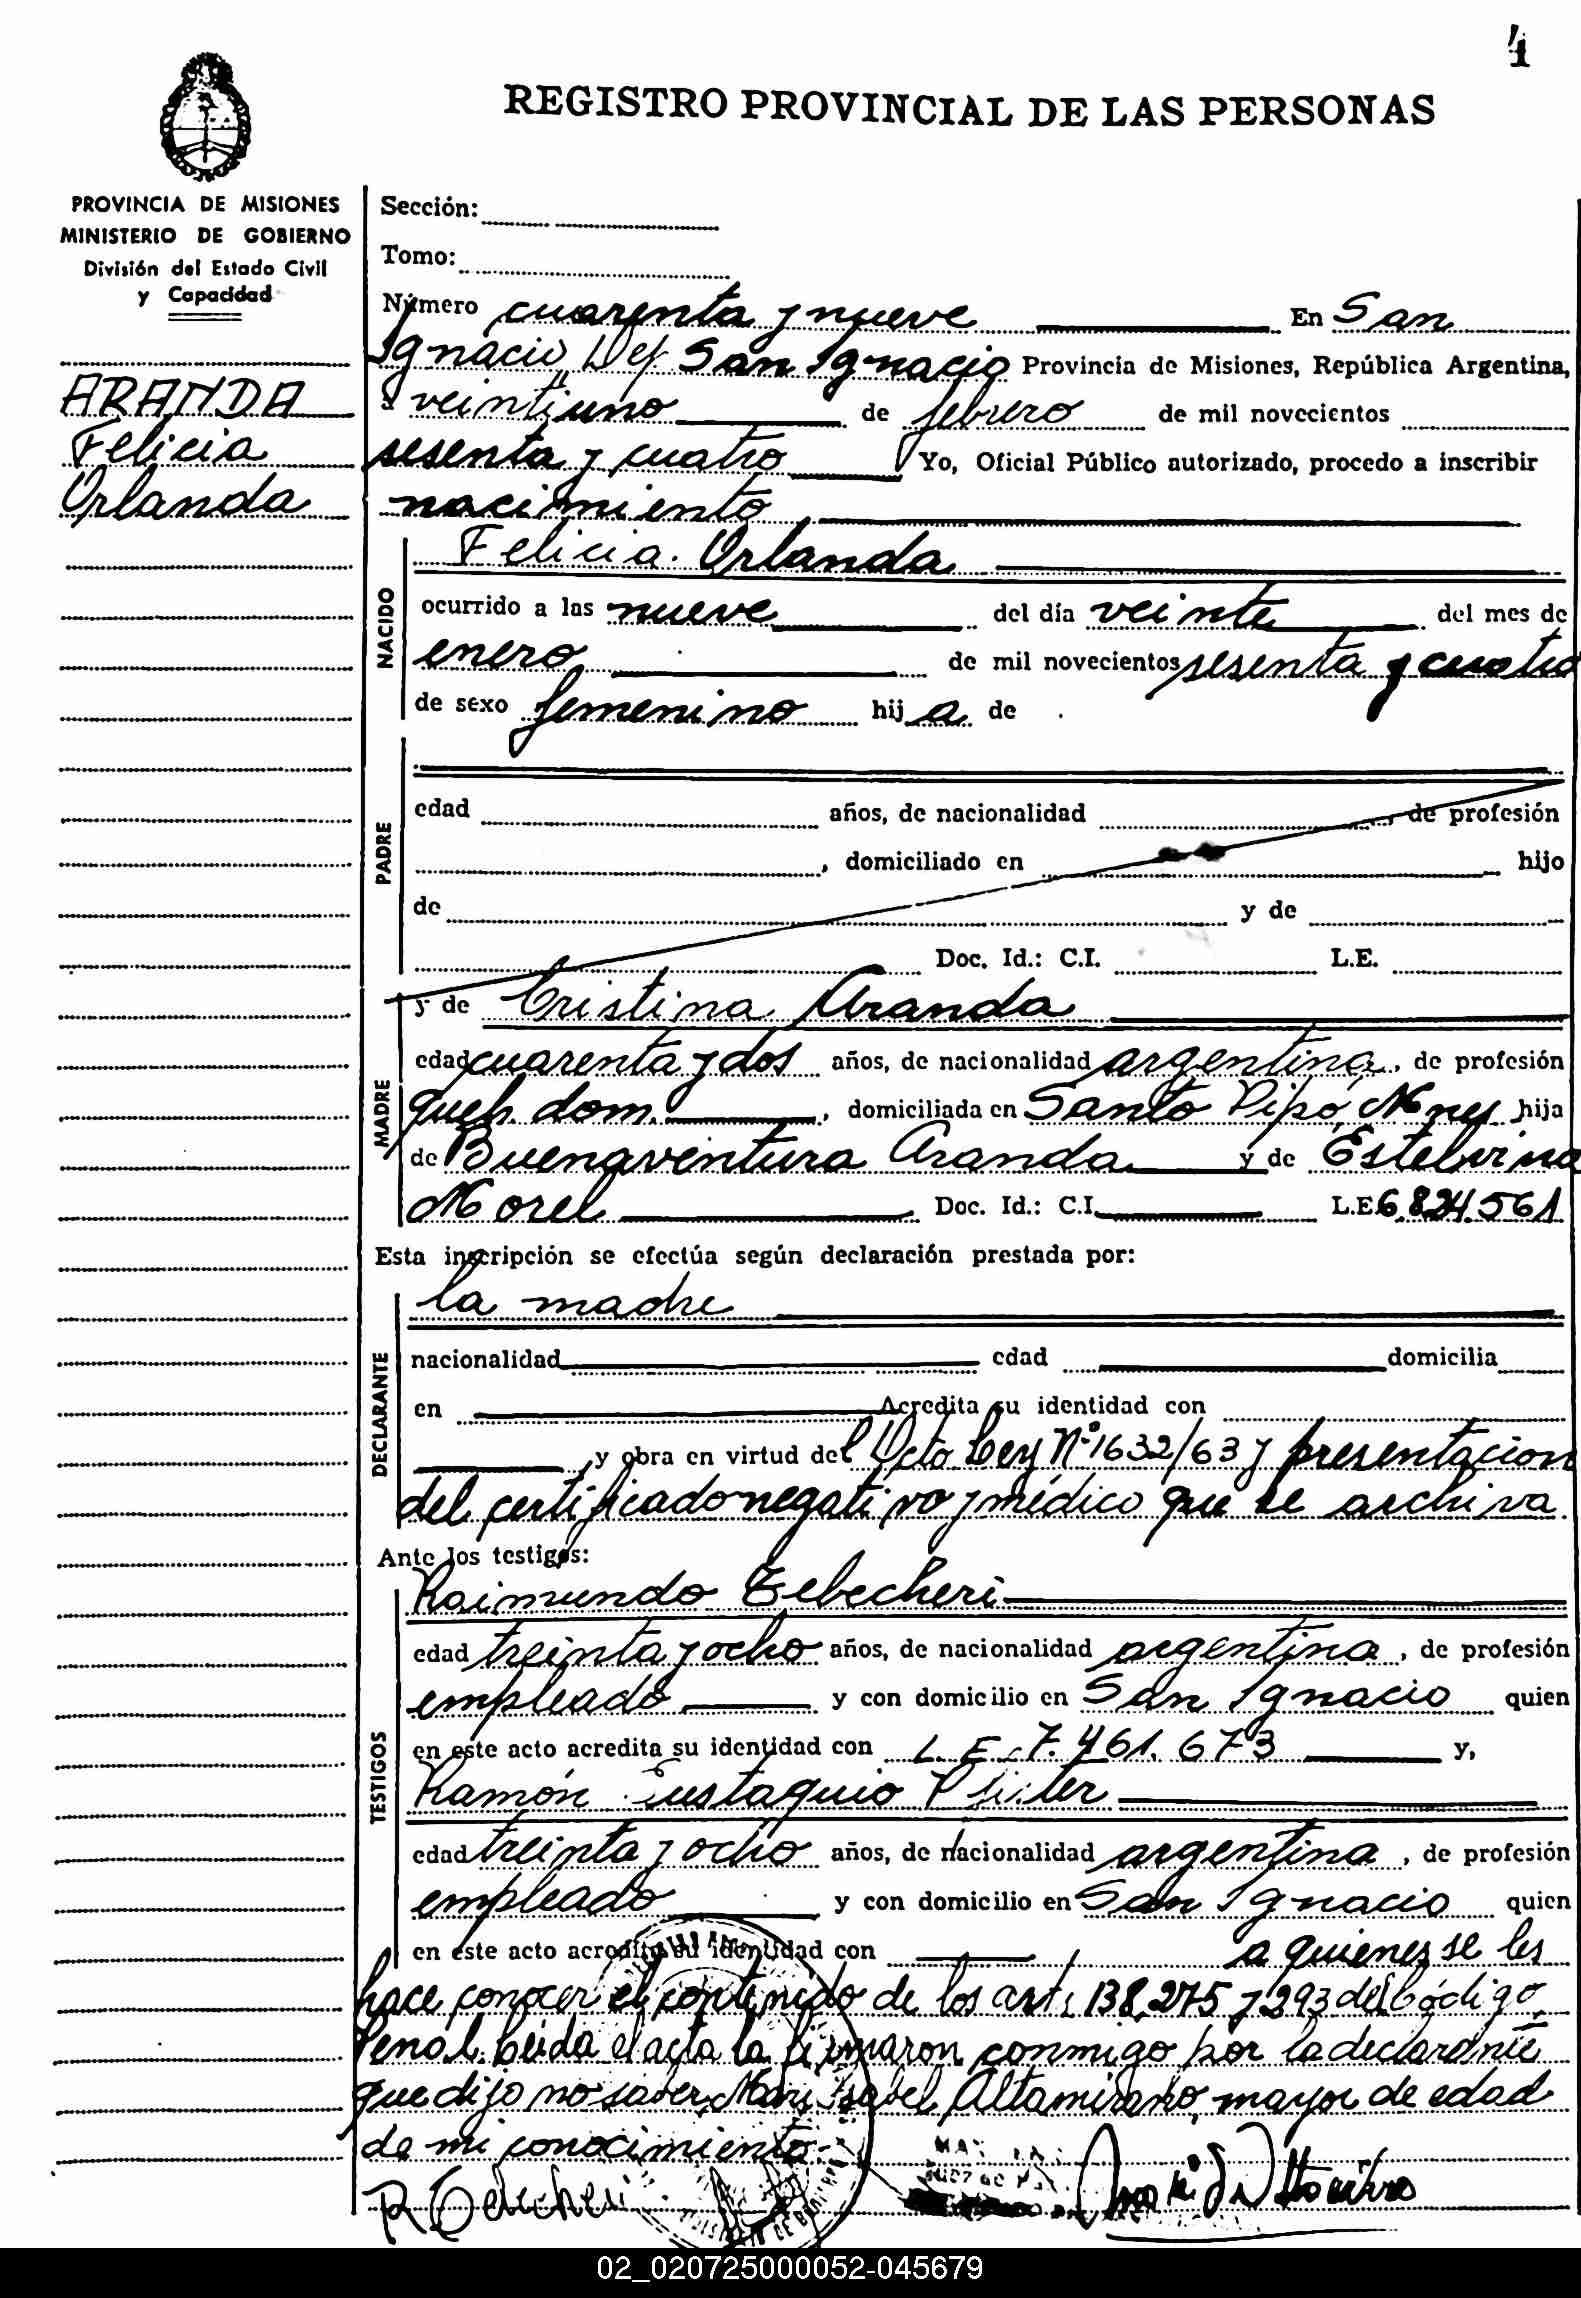 4
REGISTRO PROVINCIAL DE LAS PERSONAS
PROVINCIA DE MISIONES
MINISTERIO DE GOBIERNO
División del Estado Civil
y Capacidad
ARANDA
Felicia
Orlanda
Sección:
Tomo:
Número cuarenta y nueve En San
Ignacio Dep San Ignacio Provincia de Misiones, República Argentina,
a veintiuno de febrero de mil novecientos
sesenta y cuatro Yo, Oficial Público autorizado, procedo a inscribir
nacimiento
NACIDO
Felicia Orlanda
ocurrido a las nueve del día veinte del mes de
enero de mil novecientos sesenta y cuatro
de sexo femenino hija de
PADRE
edad años, de nacionalidad , de profesión
, domiciliado en hijo
de y de
Doc. Id.: C.I. L.E.
MADRE
y de Cristina Aranda
edad cuarenta y dos años, de nacionalidad argentina, de profesión
queh. dom. , domiciliada en Santo Pipó Mnes hija
de Buenaventura Aranda y de Estelvina
Morel Doc. Id.: C.I. L.E. 6.824.561
Esta inscripción se efectúa según declaración prestada por:
DECLARANTE
la madre
nacionalidad edad domicilia
en Acredita su identidad con
y obra en virtud del Dcto Ley Nº 1632/63 y presentacion
del certificado negativo y médico que se archiva
Ante los testigos:
TESTIGOS
Raimundo Tebecheri
edad treinta y ocho años, de nacionalidad argentina, de profesión
empleado y con domicilio en San Ignacio quien
en este acto acredita su identidad con L.E. 7.461.673 y,
Ramón Eustaquio
edad treinta y ocho años, de nacionalidad argentina, de profesión
empleado y con domicilio en San Ignacio quien
en este acto acredita su identidad con a quienes se les
hace conocer el contenido de los arts 138, 275 y 293 del Código
Penal. Leida el acta la firmaron conmigo por la declarante
que dijo no saber, Isabel Altamirano, mayor de edad
de mi conocimiento.
02_020725000052-045679